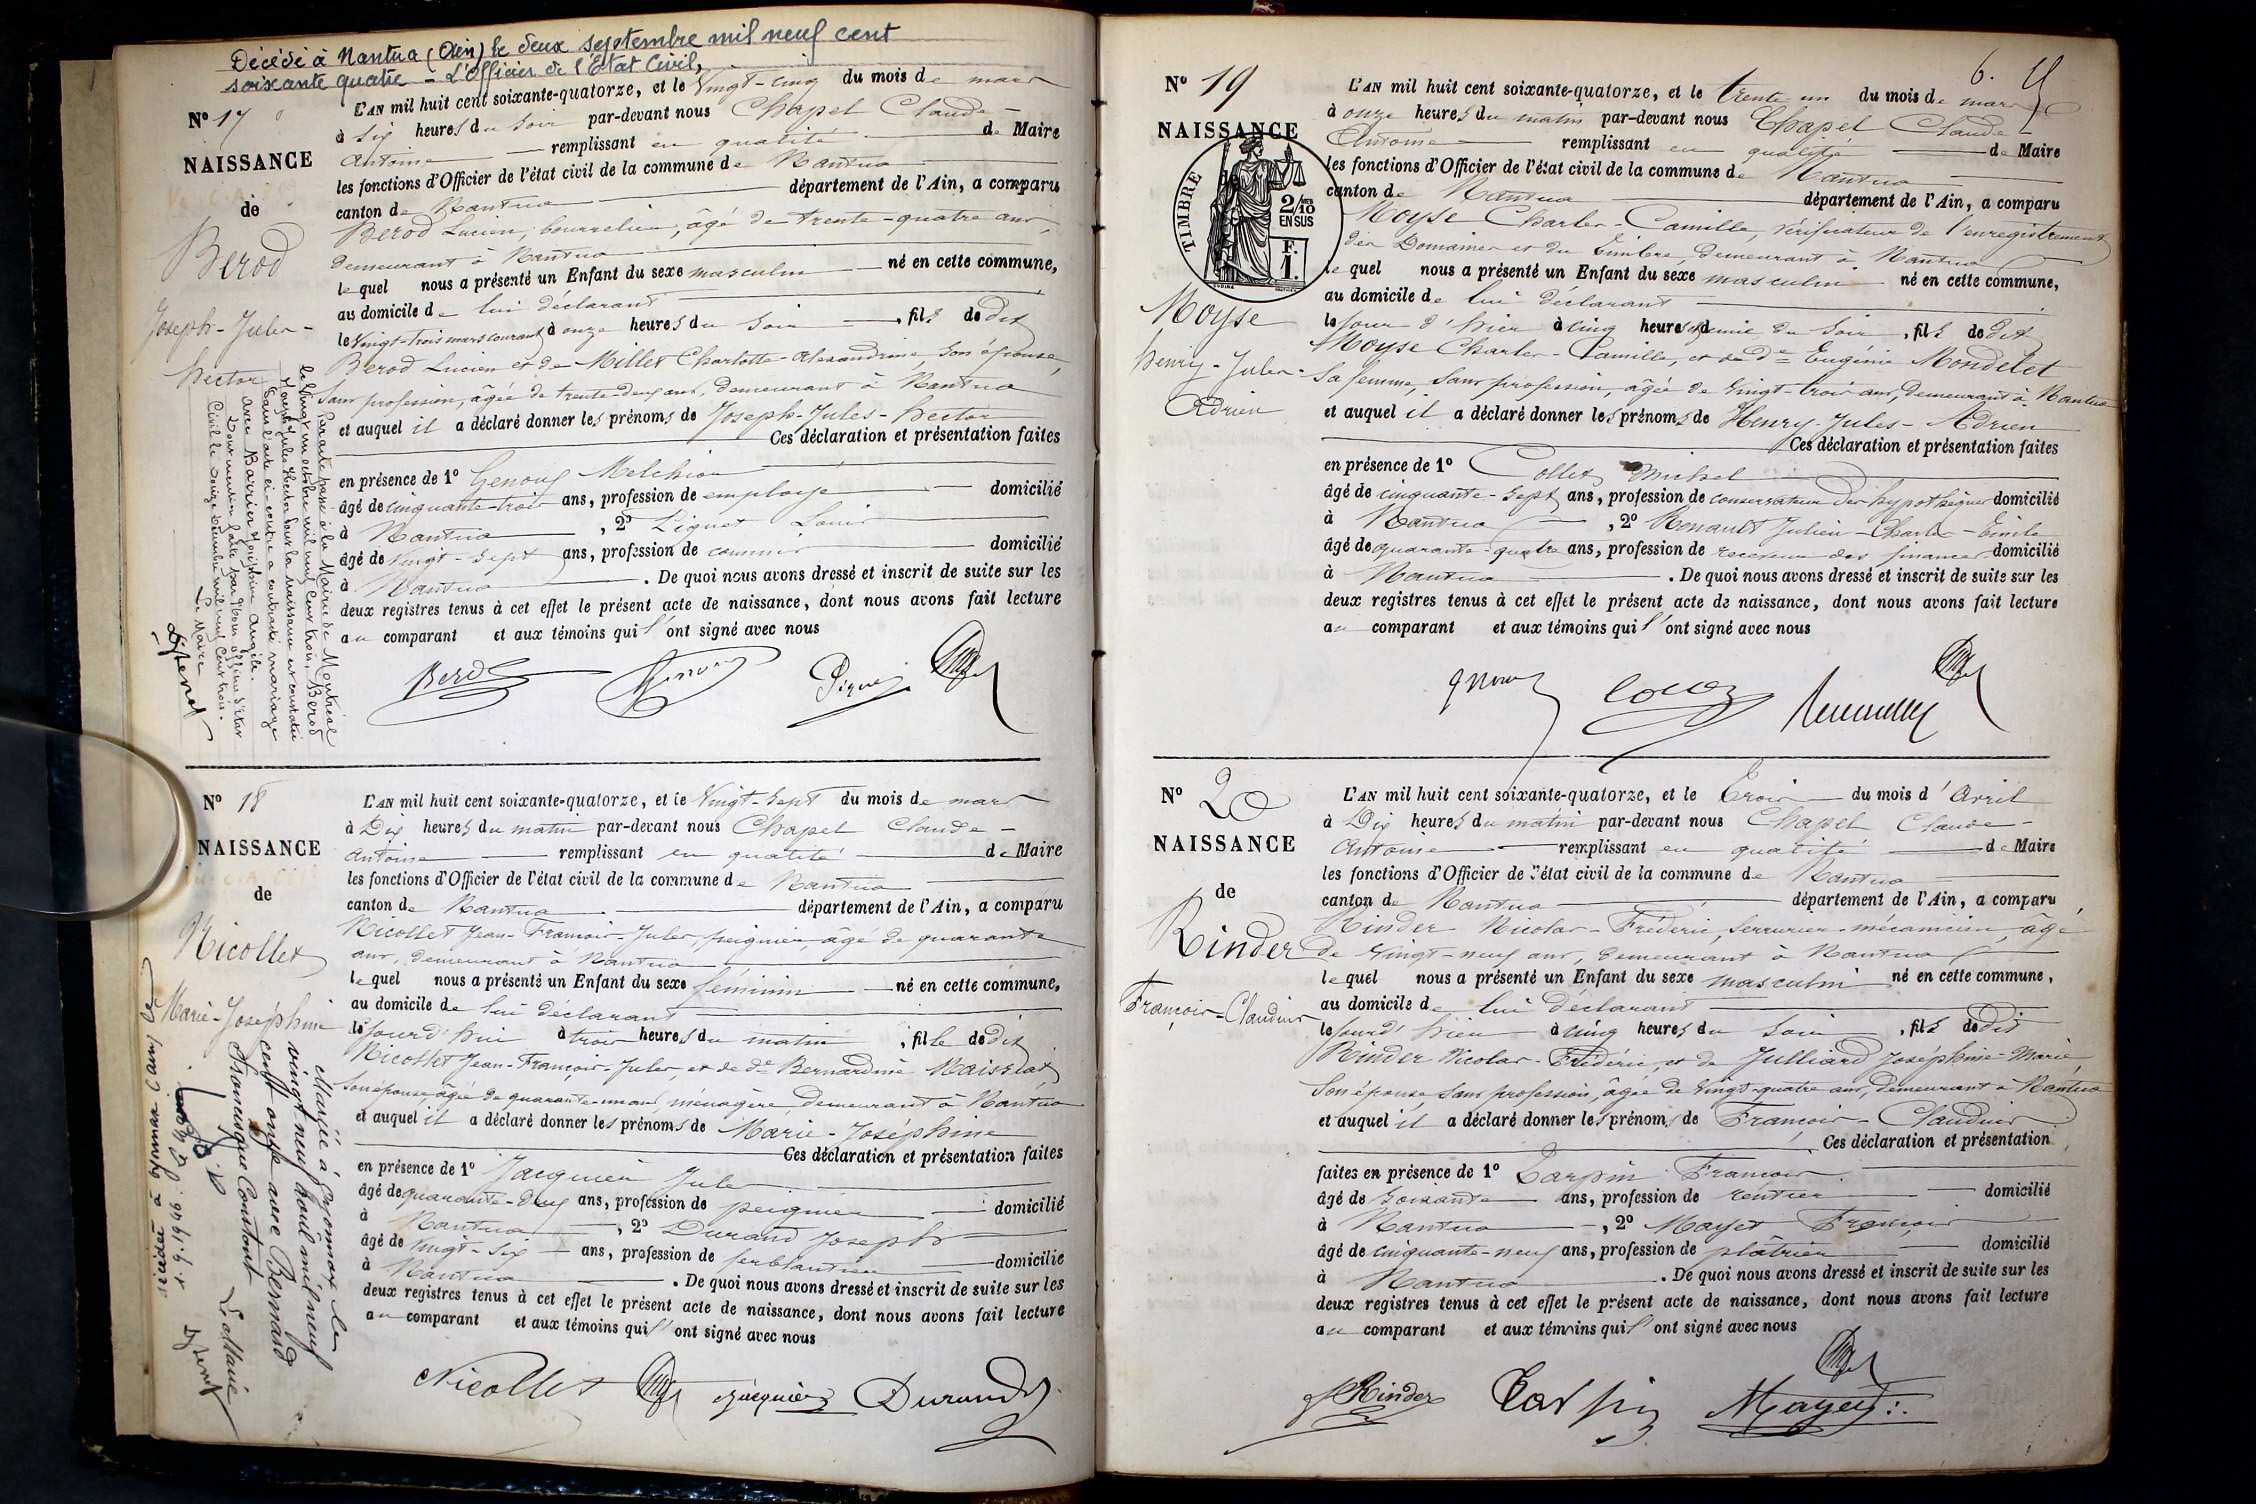 Décédé à Nantua (Ain) le deux septembre mil neuf cent
soixante quatre - L'Officier de l'Etat Civil,
N° 17
NAISSANCE
de
Berod
Joseph-Jules-
hector
L'AN mil huit cent soixante-quatorze, et le Vingt-cinq du mois de mars
à six heures du soir par-devant nous Chapel Claude-
Antoine remplissant en qualité de Maire
les fonctions d'Officier de l'état civil de la commune de Nantua
canton de Nantua département de l'Ain, a comparu
Berod Lucien, bourrelier, âgé de trente-quatre ans,
demeurant à Nantua
lequel nous a présenté un Enfant du sexe masculin né en cette commune,
au domicile de lui déclarant
le Vingt-trois mars courant à onze heures du soir, fils de dit
Berod Lucien et de Millet Charlotte-Alexandrine son épouse,
sans profession, âgée de trente-deux ans, demeurant à Nantua
et auquel il a déclaré donner les prénoms de Joseph-Jules-hector
Ces déclaration et présentation faites
en présence de 1° Genoux Melchior
âgé de cinquante-trois ans, profession de employé domicilié
à Nantua, 2° Piguet Louis
âgé de vingt-sept ans, profession de commis domicilié
à Nantua. De quoi nous avons dressé et inscrit de suite sur les
deux registres tenus à cet effet le présent acte de naissance, dont nous avons fait lecture
au comparant et aux témoins qui l'ont signé avec nous
Par acte passé à la Mairie de Montréal
le vingt un octobre mil neuf cent trois, Berod
Joseph Jules Hector dont la naissance est constatée
dans l'acte ci-contre a contracté mariage
avec Barrier Joséphine Angèle.
Dont mention faite par Nous officier d'état
Civil le douze décembre mil neuf cent trois.
Le Maire
Berod
Piguet
N° 18
NAISSANCE
de
Nicollet
Marie-Joséphine
L'AN mil huit cent soixante-quatorze, et le Vingt-sept du mois de mars
à Dix heures du matin par-devant nous Chapel Claude-
Antoine remplissant en qualité de Maire
les fonctions d'Officier de l'état civil de la commune de Nantua
canton de Nantua département de l'Ain, a comparu
Nicollet Jean-François-Jules, peignier, âgé de quarante
ans, demeurant à Nantua
lequel nous a présenté un Enfant du sexe féminin né en cette commune,
au domicile de lui déclarant
le jourd'hui à trois heures du matin, fille de dit
Nicollet Jean-François-Jules, et de de Bernardine Maissiat,
son épouse, âgée de quarante-un ans, ménagère, demeurant à Nantua
et auquel il a déclaré donner les prénoms de Marie-Joséphine
Ces déclaration et présentation faites
en présence de 1° Jacquier Jules
âgé de quarante-deux ans, profession de peignier domicilié
à Nantua, 2° Durand Joseph
âgé de vingt-six ans, profession de ferblantier domicilié
à Nantua. De quoi nous avons dressé et inscrit de suite sur les
deux registres tenus à cet effet le présent acte de naissance, dont nous avons fait lecture
au comparant et aux témoins qui l'ont signé avec nous
Mariée à Oyonnax le
vingt neuf août mil neuf
cent onze avec Bernard
Francisque Constant
Le Maire
décédée à Oyonnax (Ain) le
1.9.1946.
Nicollet Jacquier Durand
N° 19
6.
NAISSANCE
de
TIMBRE
2/10
EN SUS
F.
1.
Moyse
henry-Jules-
Adrien
L'AN mil huit cent soixante-quatorze, et le trente un du mois de mars
à onze heures du matin par-devant nous Chapel Claude-
Antoine remplissant en qualité de Maire
les fonctions d'Officier de l'état civil de la commune de Nantua
canton de Nantua département de l'Ain, a comparu
Moyse Charles-Camille, vérificateur de l'enregistrement
des Domaines et du timbre, demeurant à Nantua
lequel nous a présenté un Enfant du sexe masculin né en cette commune,
au domicile de lui déclarant
le jour d'hier à cinq heures et demie du soir, fils de dit
Moyse Charles-Camille, et de de Eugénie Mondelet
sa femme, sans profession, âgée de vingt-trois ans, demeurant à Nantua
et auquel il a déclaré donner les prénoms de Henry-Jules-Adrien
Ces déclaration et présentation faites
en présence de 1° Collet Michel
âgé de cinquante-sept ans, profession de conservateur des hypothèques domicilié
à Nantua, 2° Renault Julien-Charles-Emile
âgé de quarante-quatre ans, profession de receveur des finances domicilié
à Nantua. De quoi nous avons dressé et inscrit de suite sur les
deux registres tenus à cet effet le présent acte de naissance, dont nous avons fait lecture
au comparant et aux témoins qui l'ont signé avec nous
N° 20
NAISSANCE
de
Rinder
François-Claudius
L'AN mil huit cent soixante-quatorze, et le Trois du mois d'Avril
à Dix heures du matin par-devant nous Chapel Claude-
Antoine remplissant en qualité de Maire
les fonctions d'Officier de l'état civil de la commune de Nantua
canton de Nantua département de l'Ain, a comparu
Rinder Nicolas-Fréderic, serrurier-mécanicien, âgé
de Vingt-neuf ans, demeurant à Nantua
lequel nous a présenté un Enfant du sexe masculin né en cette commune,
au domicile de lui déclarant
le jourd'hier à cinq heures du soir, fils de dit
Rinder Nicolas-Fréderic, et de Julliard Joséphine-Marie
son épouse sans profession, âgée de vingt-quatre ans, demeurant à Nantua
et auquel il a déclaré donner les prénoms de François-Claudius
Ces déclaration et présentation
faites en présence de 1° Tarpin François
âgé de soixante ans, profession de rentier domicilié
à Nantua, 2° Mayet François
âgé de cinquante-neuf ans, profession de plâtrier domicilié
à Nantua. De quoi nous avons dressé et inscrit de suite sur les
deux registres tenus à cet effet le présent acte de naissance, dont nous avons fait lecture
au comparant et aux témoins qui l'ont signé avec nous
Rinder Tarpin Mayet